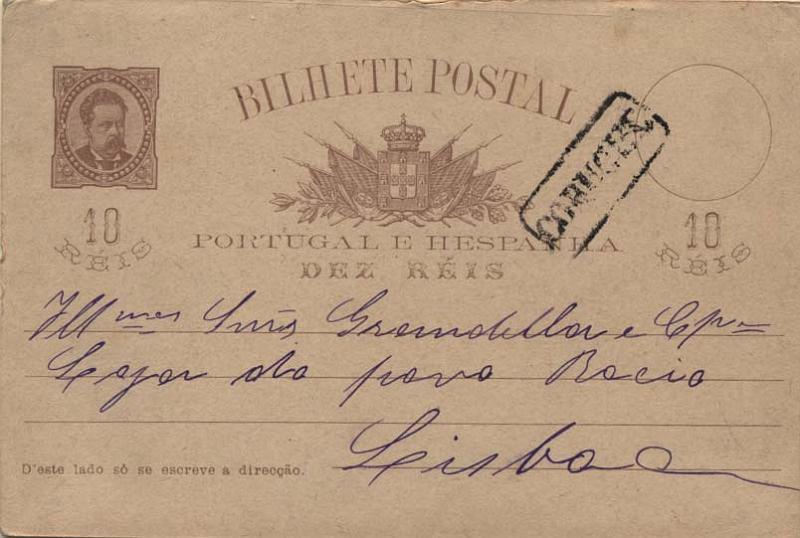 BILHETE POSTAL
CORUCHE
10
RÉIS
PORTUGAL E HESPANHA
10
RÉIS
DEZ RÉIS
Illmos Snrs Grandella e Cpa
Lojas do povo Rocio
Lisboa
D'este lado só se escreve a direcção.